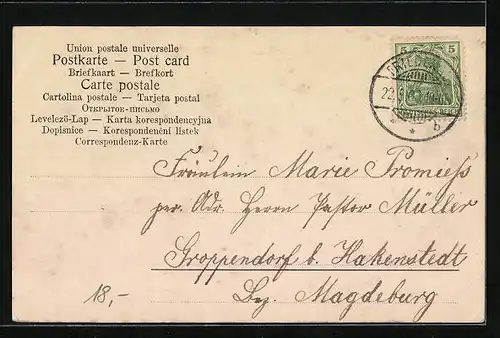 Union postale universelle
Postkarte — Post card
Briefkaart — Brefkort
Carte postale
Cartolina postale — Tarjeta postal
Открытое-письмо
Levelező-Lap — Karta korespondencyjna
Dopisnice — Korespondenční lístek
Correspondenz-Karte
5 5
b
Fräulein Marie Promieß
per. Adr. Herrn Pastor Müller
Groppendorf b. Hakenstedt
Bez. Magdeburg
18,-